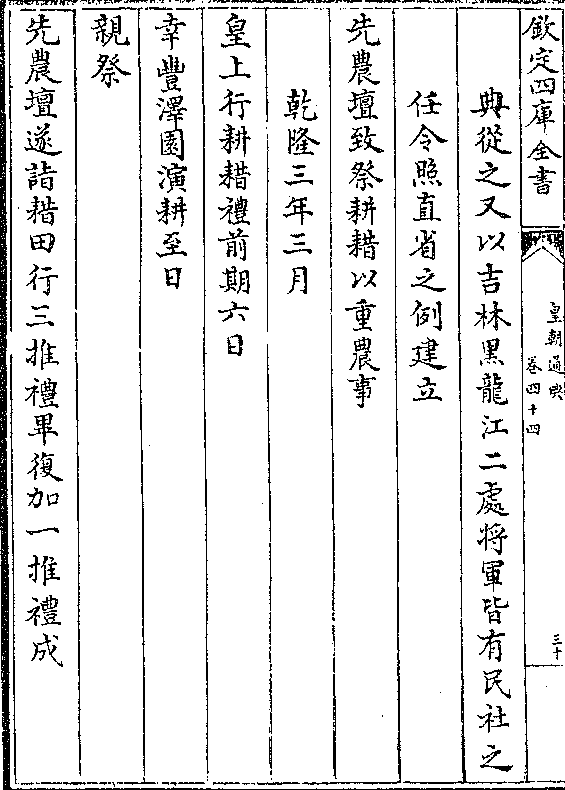 欽定四庫全書
皇朝通典
卷四十四
三十
典從之又以吉林黑龍江二處將軍皆有民社之
任令照直省之例建立
先農壇致祭耕耤以重農事
乾隆三年三月
皇上行耕耤禮前期六日
幸豐澤園演耕至日
親祭
先農壇遂詣耤田行三推禮畢復加一推禮成